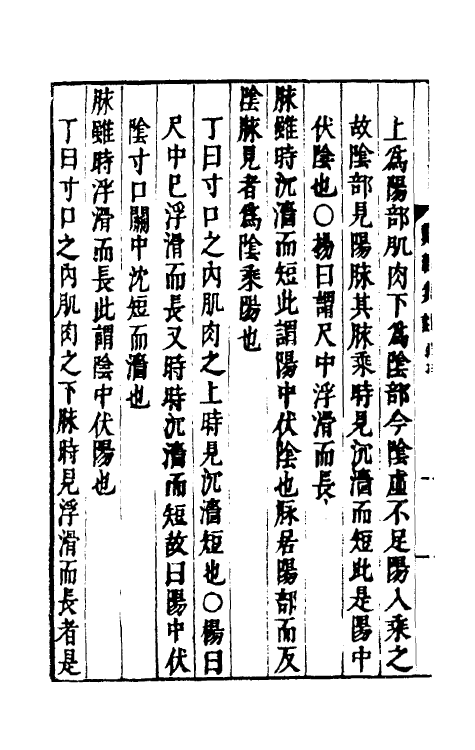 上爲陽部肌肉下爲陰部今陰虛不足陽入乘之
故陰部見陽脉其脉乘時見沉濇而短此是陽中
伏陰也○楊曰謂尺中浮滑而長
脉雖時沉濇而短此謂陽中伏陰也脉居陽部而反
陰脉見者爲陰乘陽也
丁曰寸口之內肌肉之上時見沉濇短也○楊曰
尺中已浮滑而長又時時沉濇而短故曰陽中伏
陰寸口關中沈短而濇也
脉雖時浮滑而長此謂陰中伏陽也
丁曰寸口之內肌肉之下脉時見浮滑而長者是